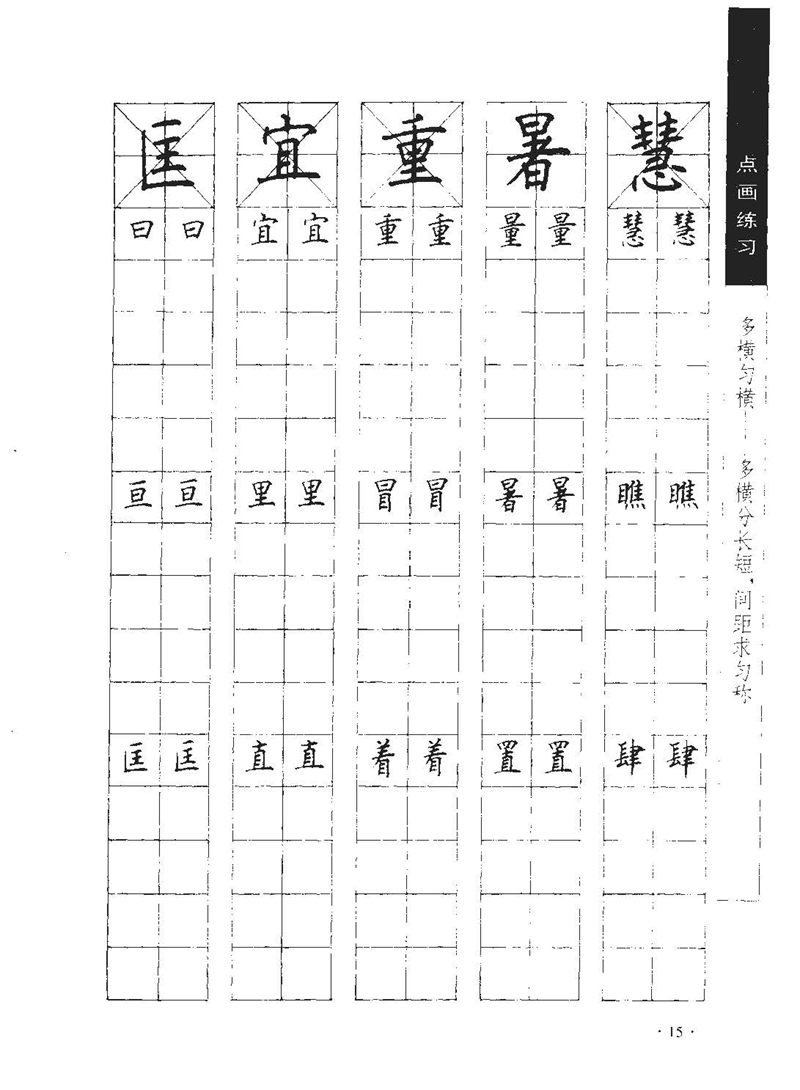 匡 宜 重 暑 慧
曰 曰 宜 宜 重 重 量 量 慧 慧
亘 亘 里 里 冒 冒 暑 暑 瞧 瞧
匡 匡 直 直 着 着 置 置 肆 肆
点画练习
多横匀横——多横分长短，间距求匀称
·15·